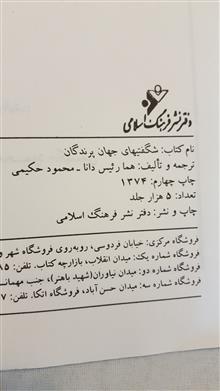 دفتر نشر فرهنگ اسلامی
نام کتاب: شگفتیهای جهان پرندگان
ترجمه و تألیف: هما رئیس دانا ـ محمود حکیمی
چاپ چهارم: ۱۳۷۴
تعداد: ۵ هزار جلد
چاپ و نشر: دفتر نشر فرهنگ اسلامی
فروشگاه مرکزی: خیابان فردوسی، روبه‌روی فروشگاه شهر و
فروشگاه شماره یک: میدان انقلاب، بازارچه کتاب. تلفن: ۸۵
فروشگاه شماره دو: میدان نیاوران (شهید باهنر)، جنب مهمانـ
فروشگاه شماره سه: میدان حسن آباد، فروشگاه اتکا. تلفن: ۷